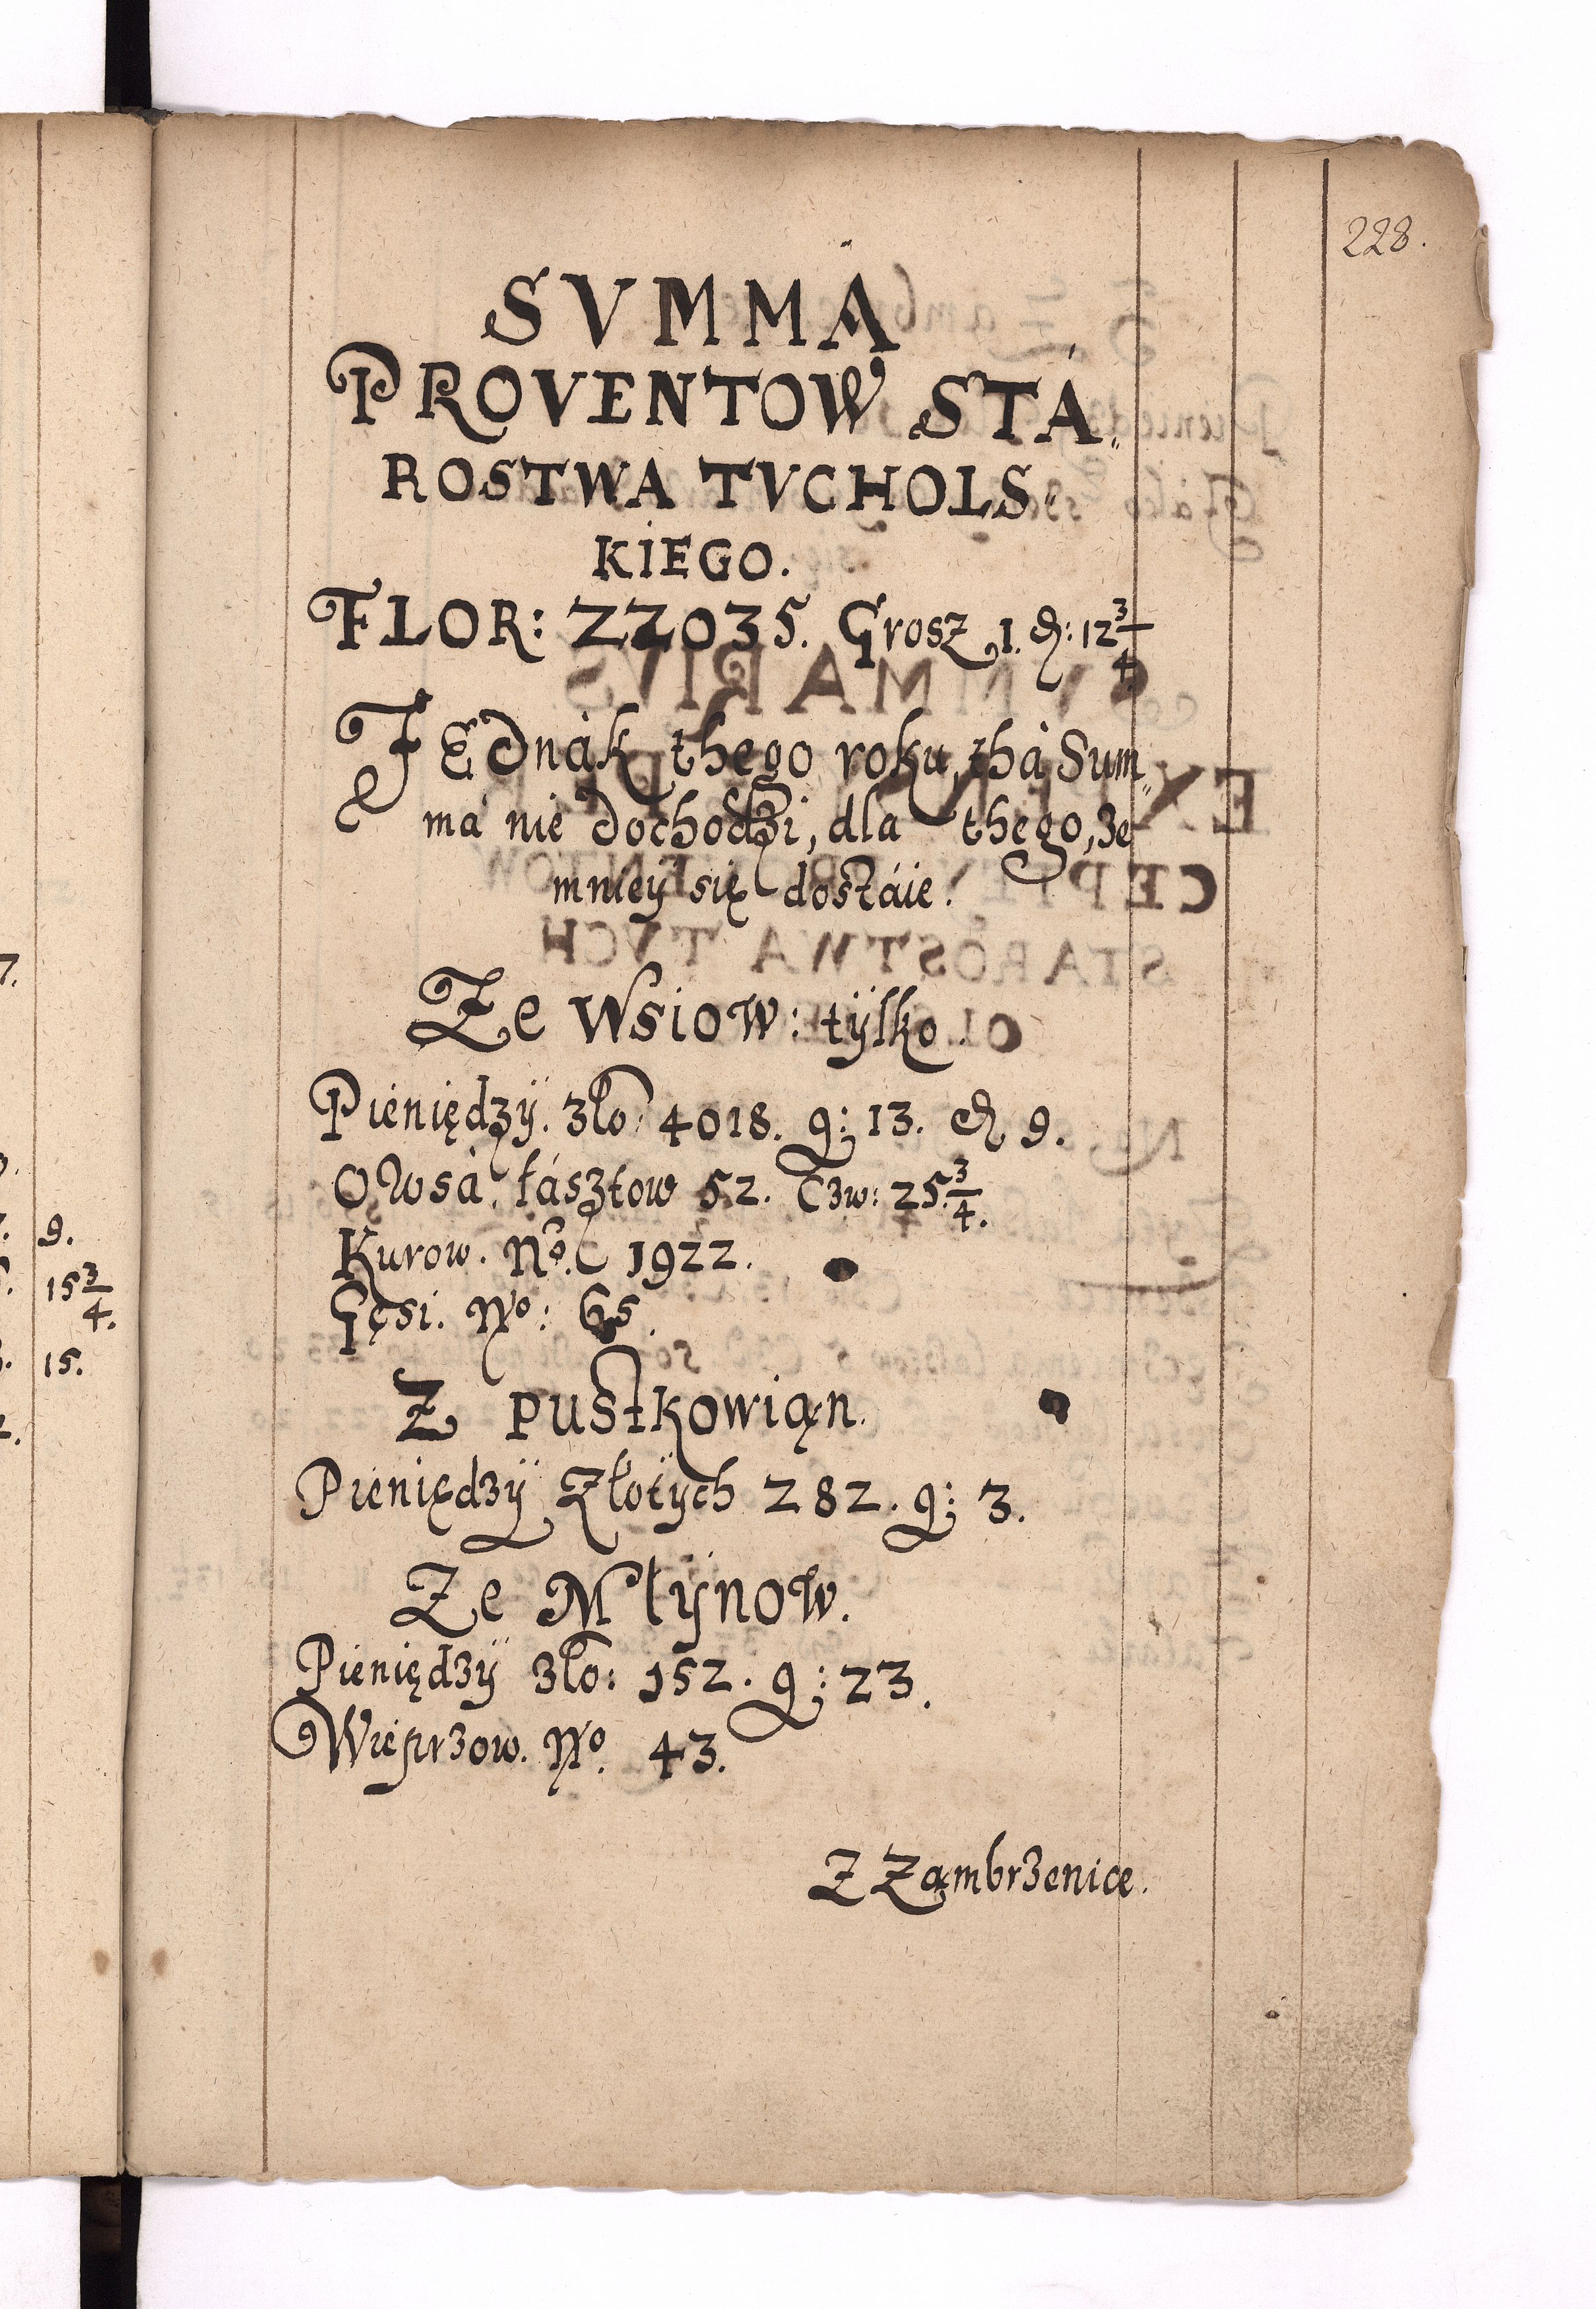 228.
SVMMA
PROVENTOW STÁ„
ROSTWA TVCHOLS„
KIEGO.
FLOR: 22035. Grosz 1. ₰: 12 3/4
JEdnák thego roku, thá Sum„
má nie dochodzi, dla thego, że
mnieÿ się dostáie.
Ze Wsiow: tÿlko.
Pieniędzÿ. zło: 4018. g: 13. ₰ 9.
Owsá. łásztow 52. Czw: 25. 3/4.
Kurow. No. 1922.
Gęsi. No: 65.
Z pustkowiąn.
Pieniędzÿ Złotÿch 282. g: 3.
Ze Młÿnow.
Pieniędzÿ zło: 152. g: 23.
Wieprzow. No. 43.
Z Ząmbrzenice.
7.
9.
15 3/4.
15.